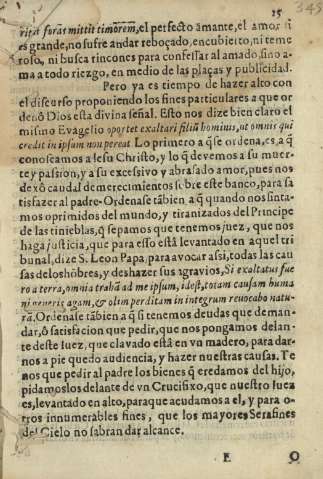 15
345
ritas foras mittit timorem, el perfecto amante, el amor si
es grande, no sufre andar reboçado, encubierto, ni teme
roso, ni busca rincones para confessar al amado, sino a-
ma a todo riezgo, en medio de las plaças y publicidad.
Pero ya es tiempo de hazer alto con
el discurso proponiendo los fines particulares a que or
denô Dios esta divina señal. Esto nos dize bien claro el
mismo Evagelio oportet exaltari filiũ hominis, ut omnis qui
credit in ipsum non pereat Lo primero a q̃ se ordena, es, a q̃
conoscamos a Iesu Christo, y lo q̃ devemos a su muer-
te y passion, y a su excessivo y abrasado amor, pues nos
dexô caudal de merecimientos sobre este banco, para sa
tisfazer al padre. Ordenase tãbien, a q̃ quando nos sinta-
mos oprimidos del mundo, y tiranizados del Principe
de las tinieblas, q̃ sepamos que tenemos juez, que nos
haga justicia, que para esso està levantado en aquel tri
bunal, dize S. Leon Papa, para avocar a si, todas las cau
sas de los hõbres, y deshazer sus agravios, Si exaltatus fue
ro a terra, omnia trahã ad me ipsum, idest, totam causam huma
ni generis agam, & olim perditam in integrum revocabo natu-
rã. Ordenase tãbien a q̃ si tenemos deudas que deman-
dar, ô satisfacion que pedir, que nos pongamos delan-
te deste Iuez, que clavado està en vn madero, para dar-
nos a pie quedo audiencia, y hazer nuestras causas. Te
nos que pedir al padre los bienes q̃ eredamos del hijo,
pidamoslos delante de vn Crucifixo, que nuestro Iuez
es, levantado en alto, paraque acudamos a el, y para o-
tros innumerables fines, que los mayores Serafines
del Cielo no sabran dar alcance.
E O